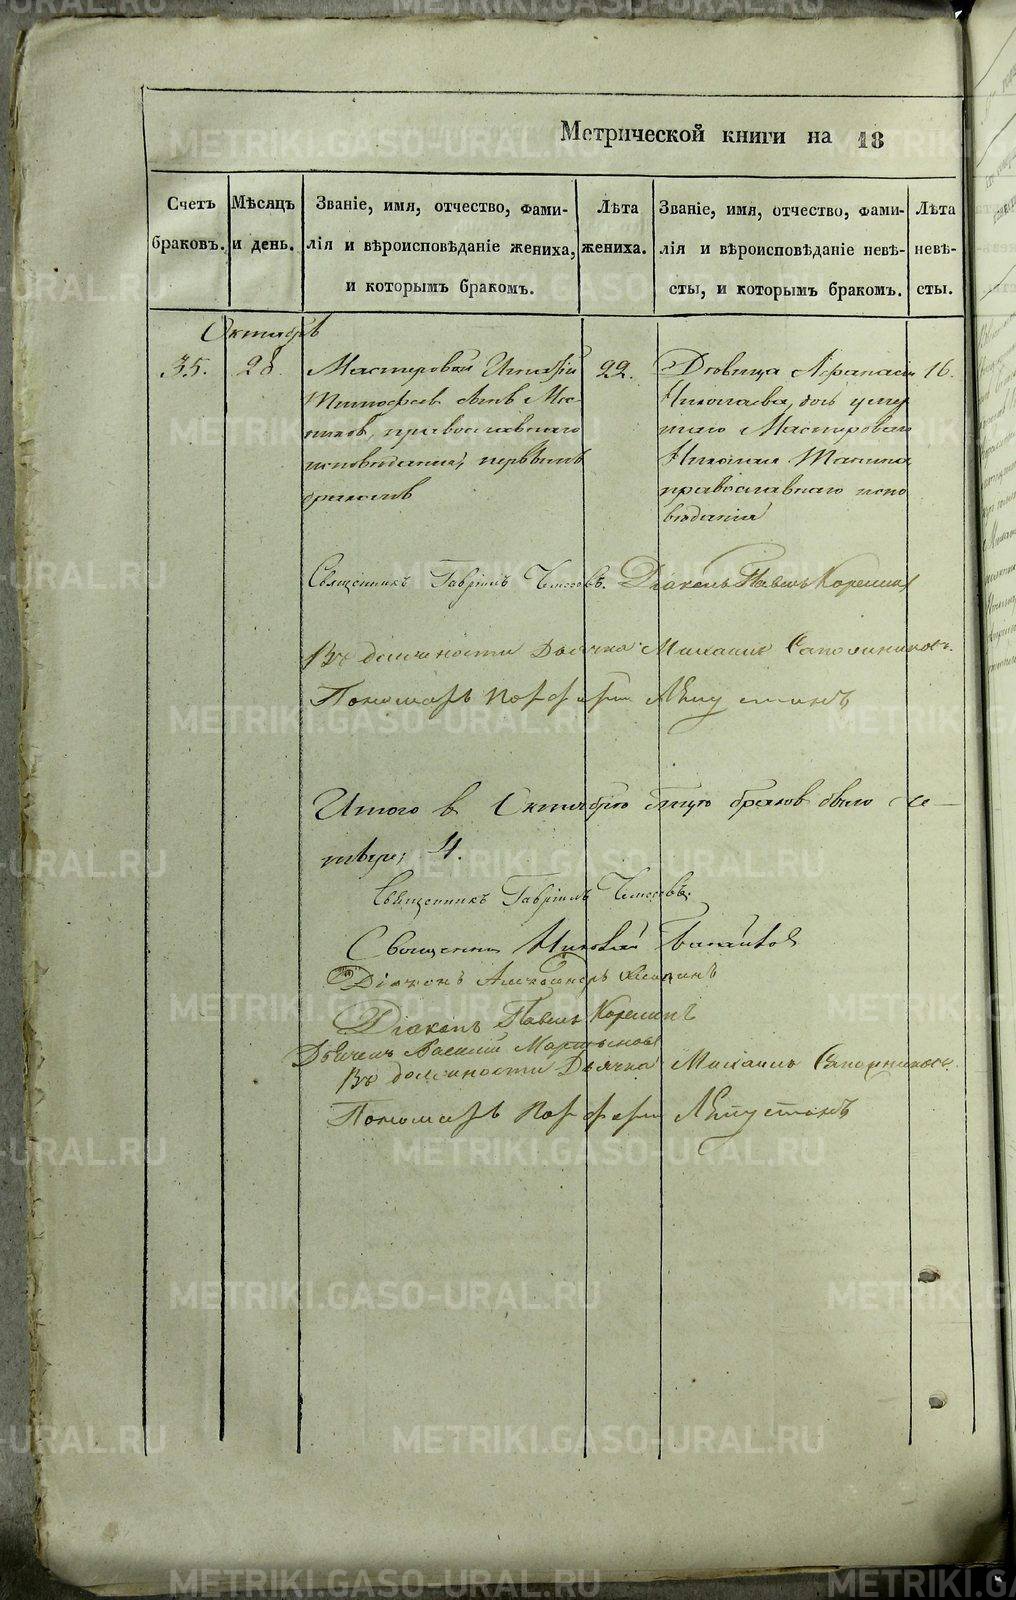 Метрической книги на 18
Счетъ браковъ.
Мѣсяцъ и день.
Званіе, имя, отчество, фами-
лія и вѣроисповѣданіе жениха,
и которымъ бракомъ.
Лѣта
жениха.
Званіе, имя, отчество, фами-
лія и вѣроисповѣданіе невѣ-
сты, и которымъ бракомъ.
Лѣта
невѣ-
сты.
Октябрь
35.
28.
Мастеровой Игнатій
Тимофеевъ сынъ
православнаго
исповѣданія, первымъ
бракомъ
22.
Дѣвица
Николаева, дочь умер
шаго Мастероваго
Николая
православнаго испо
вѣданія
16.
Священникъ Гавріилъ Діаконъ Павелъ Корелинъ
Въ должности Дьячка Михаилъ
Пономарь Порфирій
Итого в Октябрѣ браков было че-
тыре, 4.
Священникъ Гавріилъ
Священникъ Николай
Діаконъ Александръ
Діаконъ Павелъ Корелинъ
Дьячекъ Василій Мартыновъ
Въ должности Дьячка Михаилъ
Пономарь Порфирій
METRIKI.GASO-URAL.RU